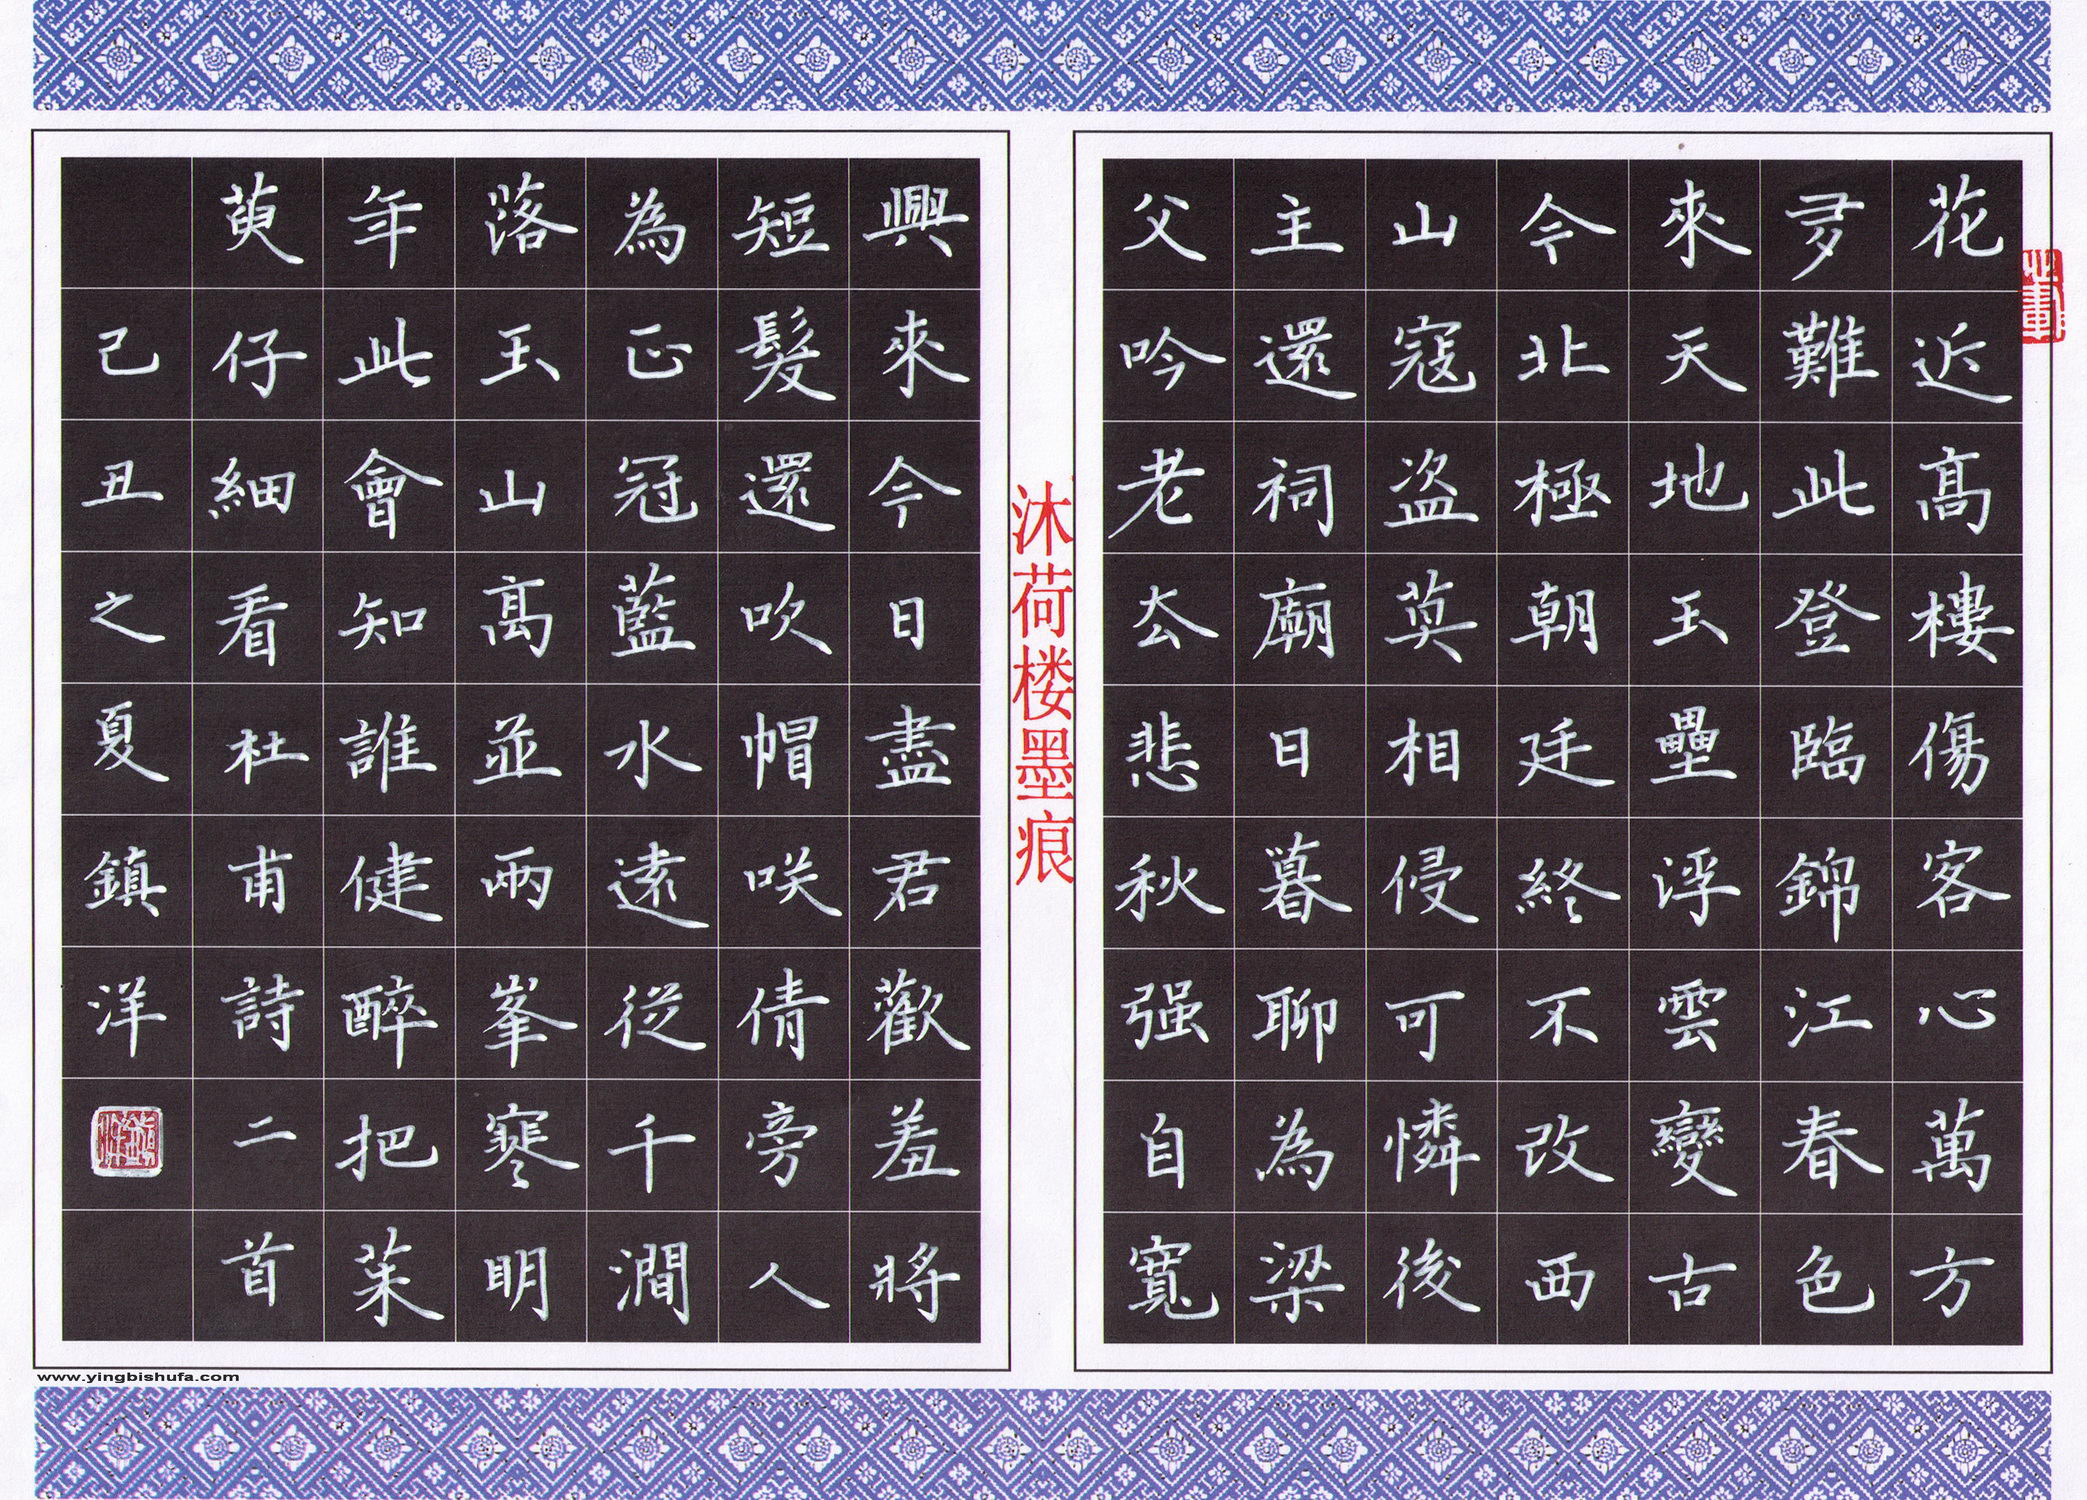 花近高樓傷客心萬方
多難此登臨錦江春色
來天地玉壘浮雲變古
今北極朝廷終不改西
山寇盜莫相侵可憐後
主還祠廟日暮聊為梁
父吟老去悲秋强自寬
沐荷楼墨痕
興來今日盡君歡羞將
短髮還吹帽咲倩旁人
為正冠藍水遠從千澗
落玉山高並兩峯寒明
年此會知誰健醉把茱
萸仔細看杜甫詩二首
己丑之夏鎮洋
www.yingbishufa.com